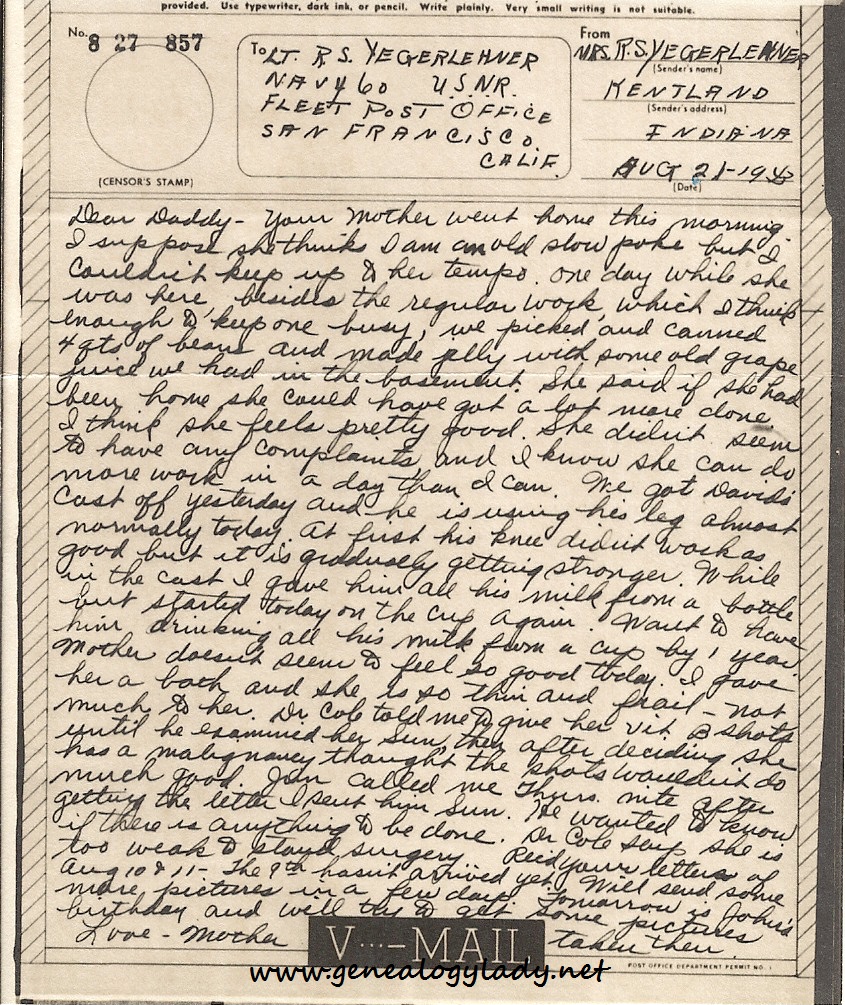 provided. Use typewriter, dark ink, or pencil. Write plainly. Very small writing is not suitable.
No.
8 27 857
(CENSOR'S STAMP)
To LT. R S. YEGERLEHNER
NAVY 60 U.S.N.R.
FLEET POST OFFICE
SAN FRANCISCO.
CALIF.
From
MRS. R.S. YEGERLEHNER
(Sender's name)
KENTLAND
(Sender's address)
INDIANA
AUG 21-1943
(Date)
Dear Daddy - Your Mother went home this morning.
I suppose she thinks I am an old slow poke but I
couldn't keep up to her tempo. One day while she
was here, besides the regular work, which I think
enough to keep one busy, we picked and canned
4 qts of beans and made jelly with some old grape
juice we had in the basement. She said if she had
been home she could have got a lot more done.
I think she feels pretty good. She didn't seem
to have any complaints and I know she can do
more work in a day than I can. We got David's
cast off yesterday and he is using his leg almost
normally today. At first his knee didn't work as
good but it is gradually getting stronger. While
in the cast I gave him all his milk from a bottle
but started today on the cup again. Want to have
him drinking all his milk from a cup by 1 year.
Mother doesn't seem to feel so good today. I gave
her a bath and she is so thin and frail - not
much to her. Dr Cole told me to give her vit B shots
until he examined her Sun, then after deciding she
has a malignancy thought the shots wouldn't do
much good. Jim called me Thurs. nite after
getting the letter I sent him Sun. He wanted to know
if there is anything to be done. Dr Cole says she is
too weak to stand surgery. Rec'd your letters of
Aug 10 & 11 - The 9th hasn't arrived yet. Will send some
more pictures in a few days. Tomorrow is John's
birthday and will try to get some pictures
taken then.
Love - Mother
V···-MAIL
www.genealogylady.net
POST OFFICE DEPARTMENT PERMIT NO. 1